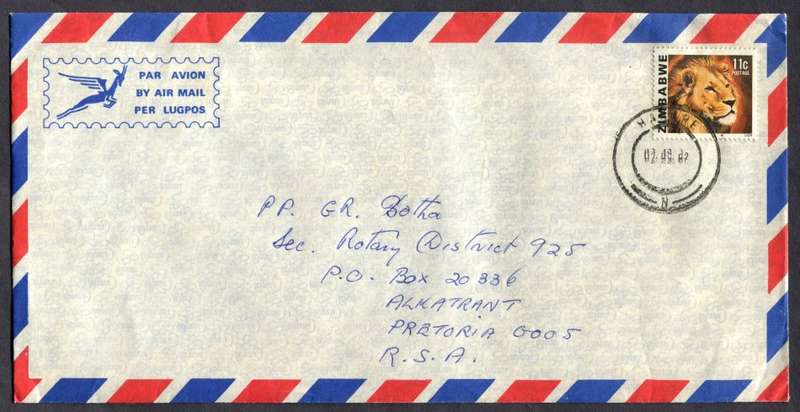 PAR AVION
BY AIR MAIL
PER LUGPOS
ZIMBABWE
11c
POSTAGE
HARARE
N
P.P. G.R. Botha
Sec. Rotary District 925
P.O. Box 20336
ALKATRANT
PRETORIA 0005
R.S.A.